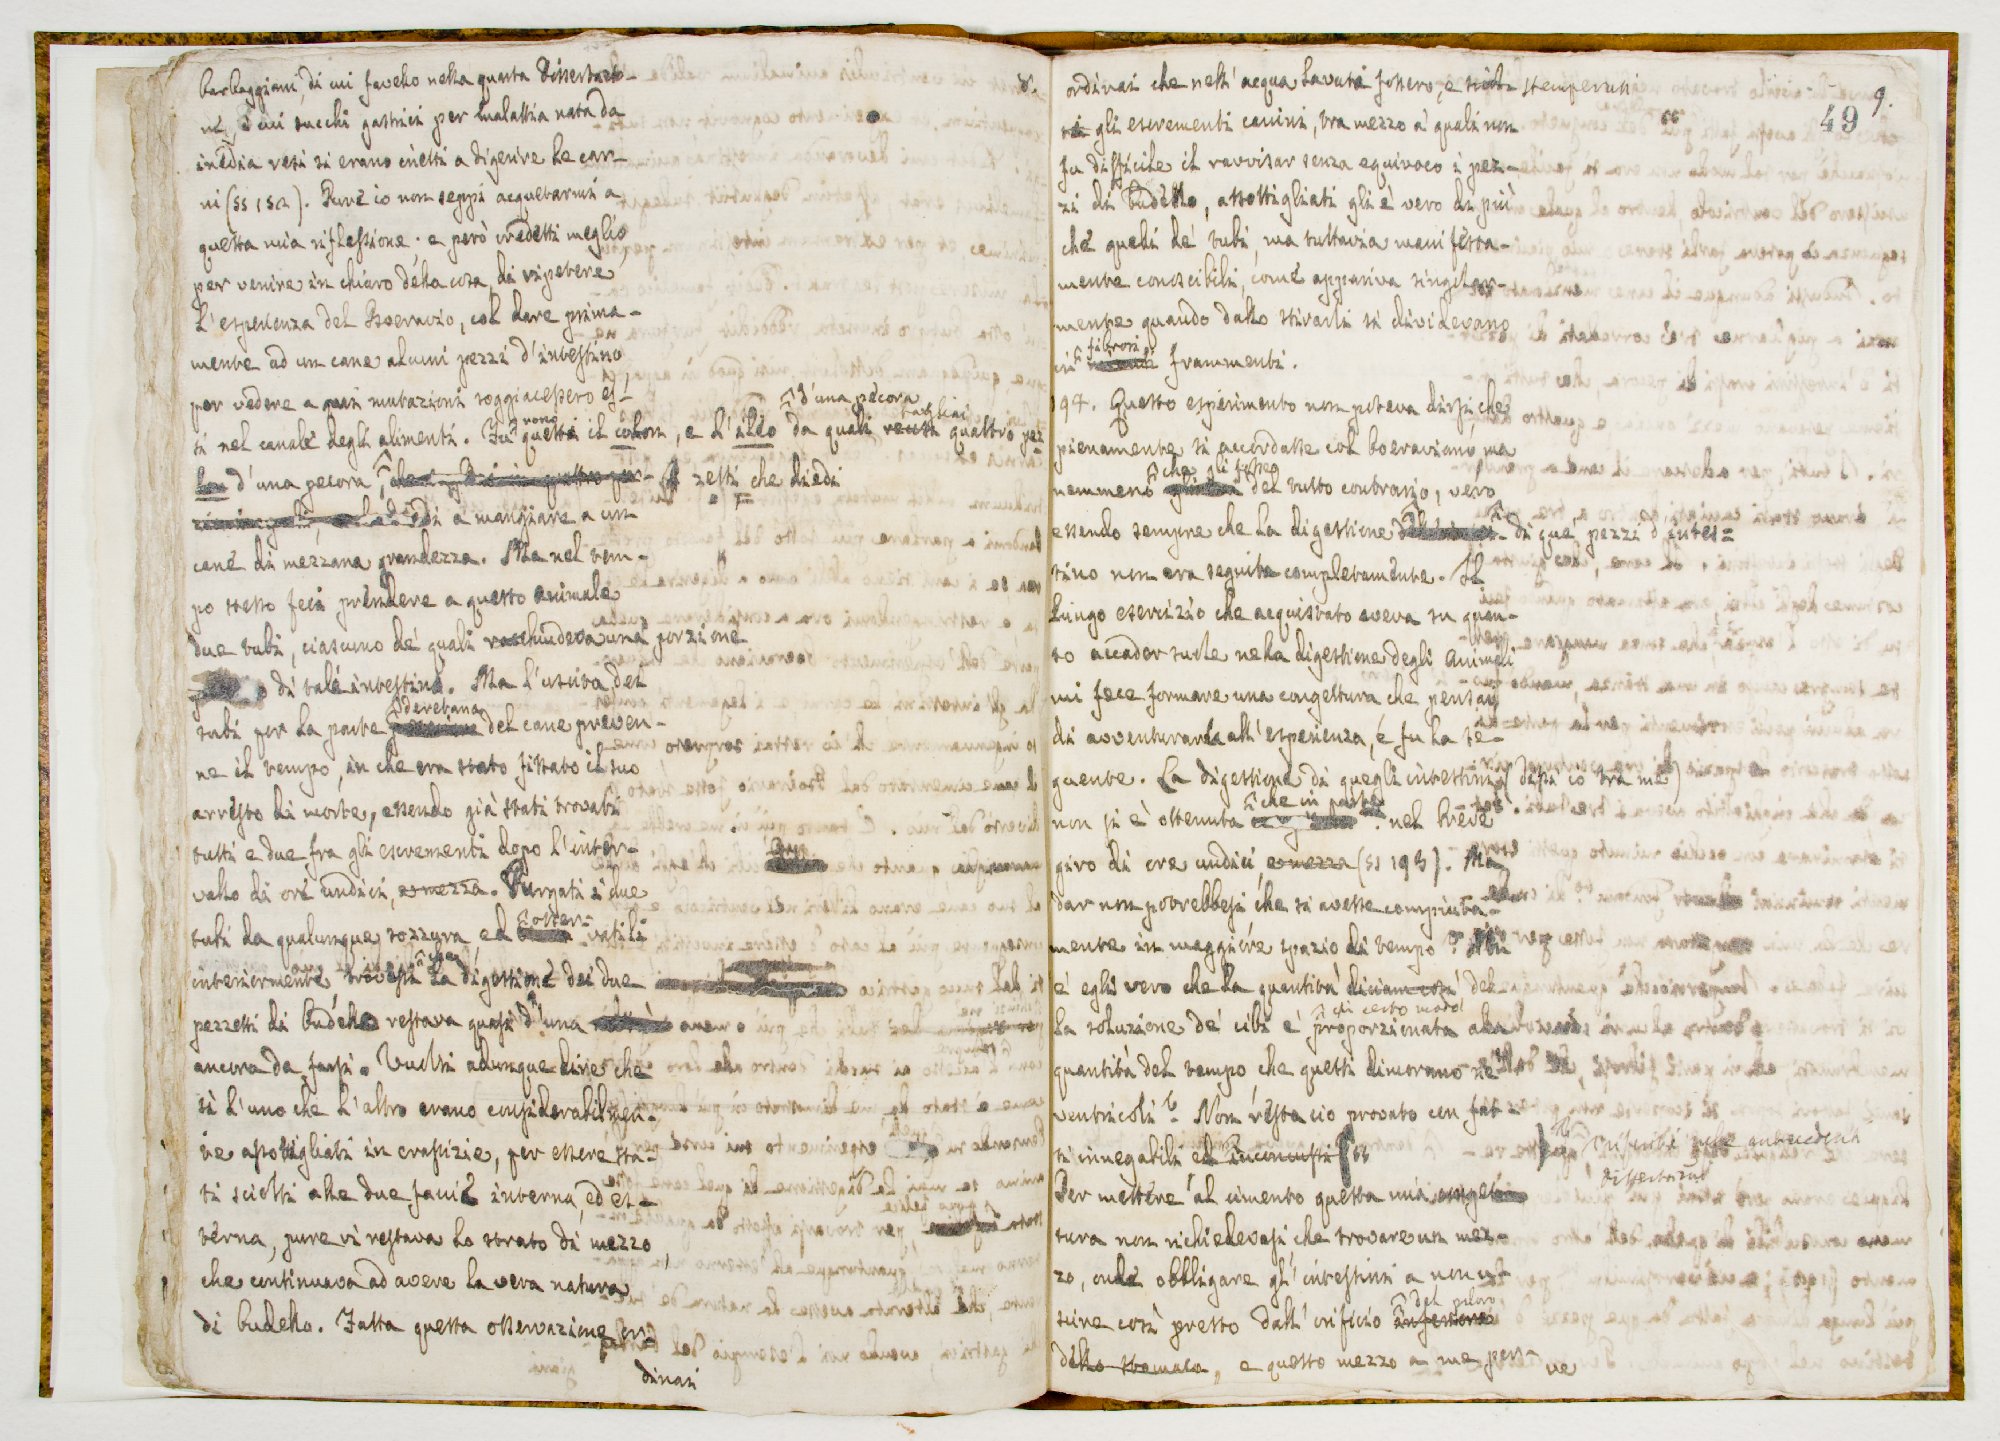 barbaggiani, di cui favello nella quarta Dissertazio-
ne, i cui succhi gastrici per malattia nata da
inedia resi si erano inetti a digerire le car-
ni (§§ 152). Pure io non seppi acquetarmi a
questa mia riflessione; e però credetti meglio
per venire in chiaro della cosa, di ripetere
l'esperienza del Boeravio, col dare prima-
mente ad un cane alcuni pezzi d'intestino
per vedere a quai mutazioni soggiacessero es-
d'una pecora
tagliai
si nel canale degli alimenti. questi il colon, e l'ileo da quali quattro pez-
lon d'una pecora, zetti che diedi
a mangiare a un
cane di mezzana grandezza. Ma nel tem-
po stesso feci prendere a questo animale
due tubi, ciascuno de' quali racchiudeva una porzione
di tale intestino. Ma l'uscita dei
deretana
tubi per la parte del cane preven-
ne il tempo, in che era stato fissato il suo
arresto di morte, essendo già stati trovati
tutti e due fra gli escrementi dopo l'inter-
vallo di ore undici, e mezza. Purgati i due
tubi da qualunque sozzura ed
interiormente la digestione dei due
pezzetti di budello restava quasi
ancora da farsi. Vuolsi adunque dire che
sì l'uno che l'altro erano considerabilmen-
te assottigliati in crassizie, per essere sta-
ti sciolti alle due faccie interna, ed es-
terna, pure vi restava lo strato di mezzo,
che continuava ad avere la vera natura
di budello. Fatta questa osservazione or-
dinai
9.
49
ordinai che nell'acqua lavati fossero, e stemperati
gli escrementi canini, tra mezzo a' quali non
fu difficile il ravvisar senza equivoco i pez-
zi di budello, assottigliati gli è vero di più
che quelli de' tubi, ma tuttavia manifesta-
mente conoscibili, come appariva singolar-
mente quando dallo stirarli si dividevano
fibrosi
in frammenti.
194. Questo esperimento non poteva dirsi, che
pienamente si accordasse col boeraviano, ma
che gli fosse
nemmeno del tutto contrario, vero
essendo sempre che la digestione di que' pezzi d'intes=
tino non era seguita completamente. Il
lungo esercizio che acquistato aveva su quan-
to accader suole nella digestione degli animali
mi fece formare una congettura che pensai
di avventurarla all'esperienza, e fu la se-
guente. La digestione di quegli intestini (dissi io tra me)
che in parte
non si è ottenuta nel breve
giro di ore undici, e mezza (§§ 193). Ma
dar non potrebbesi che si avesse compiuta-
mente in maggiore spazio di tempo? Non
è egli vero che la quantità diciam così del-
in certo modo
la soluzione de' cibi è proporzionata alla
quantità del tempo, che questi dimorano ne'
ventricoli? Non resta ciò provato con fat-
ti innegabili ed inconcussi §§
riferiti nelle antecedenti
Dissertazioni
Per mettere al cimento questa mia conget-
tura non richiedevasi che trovare un mez-
zo, onde obbligare gl'intestini a non u-
del piloro
scire così presto dall'orificio inferiore
dello stomaco, e questo mezzo a me per-
ve